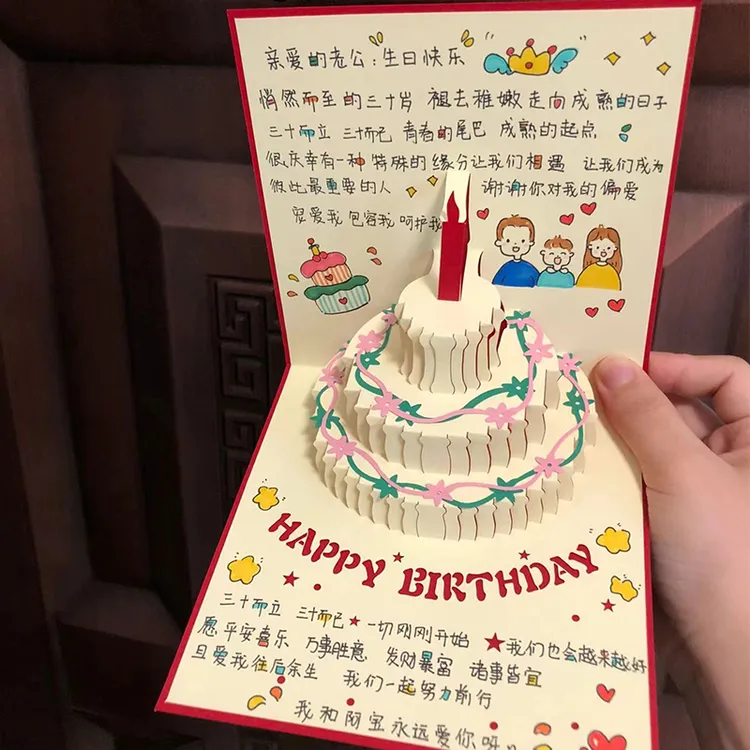 亲爱的老公：生日快乐
悄然而至的三十岁 褪去稚嫩走向成熟的日子
三十而立 三十而已 青春的尾巴 成熟的起点
很庆幸有一种特殊的缘分让我们相遇 让我们成为
彼此最重要的人 谢谢你对我的偏爱
宠爱我 包容我 呵护我
HAPPY BIRTHDAY
三十而立 三十而已 一切刚刚开始 我们也会越来越好
愿平安喜乐 万事胜意 发财暴富 诸事皆宜
且爱我往后余生 我们一起努力前行
我和阿宝永远爱你呀